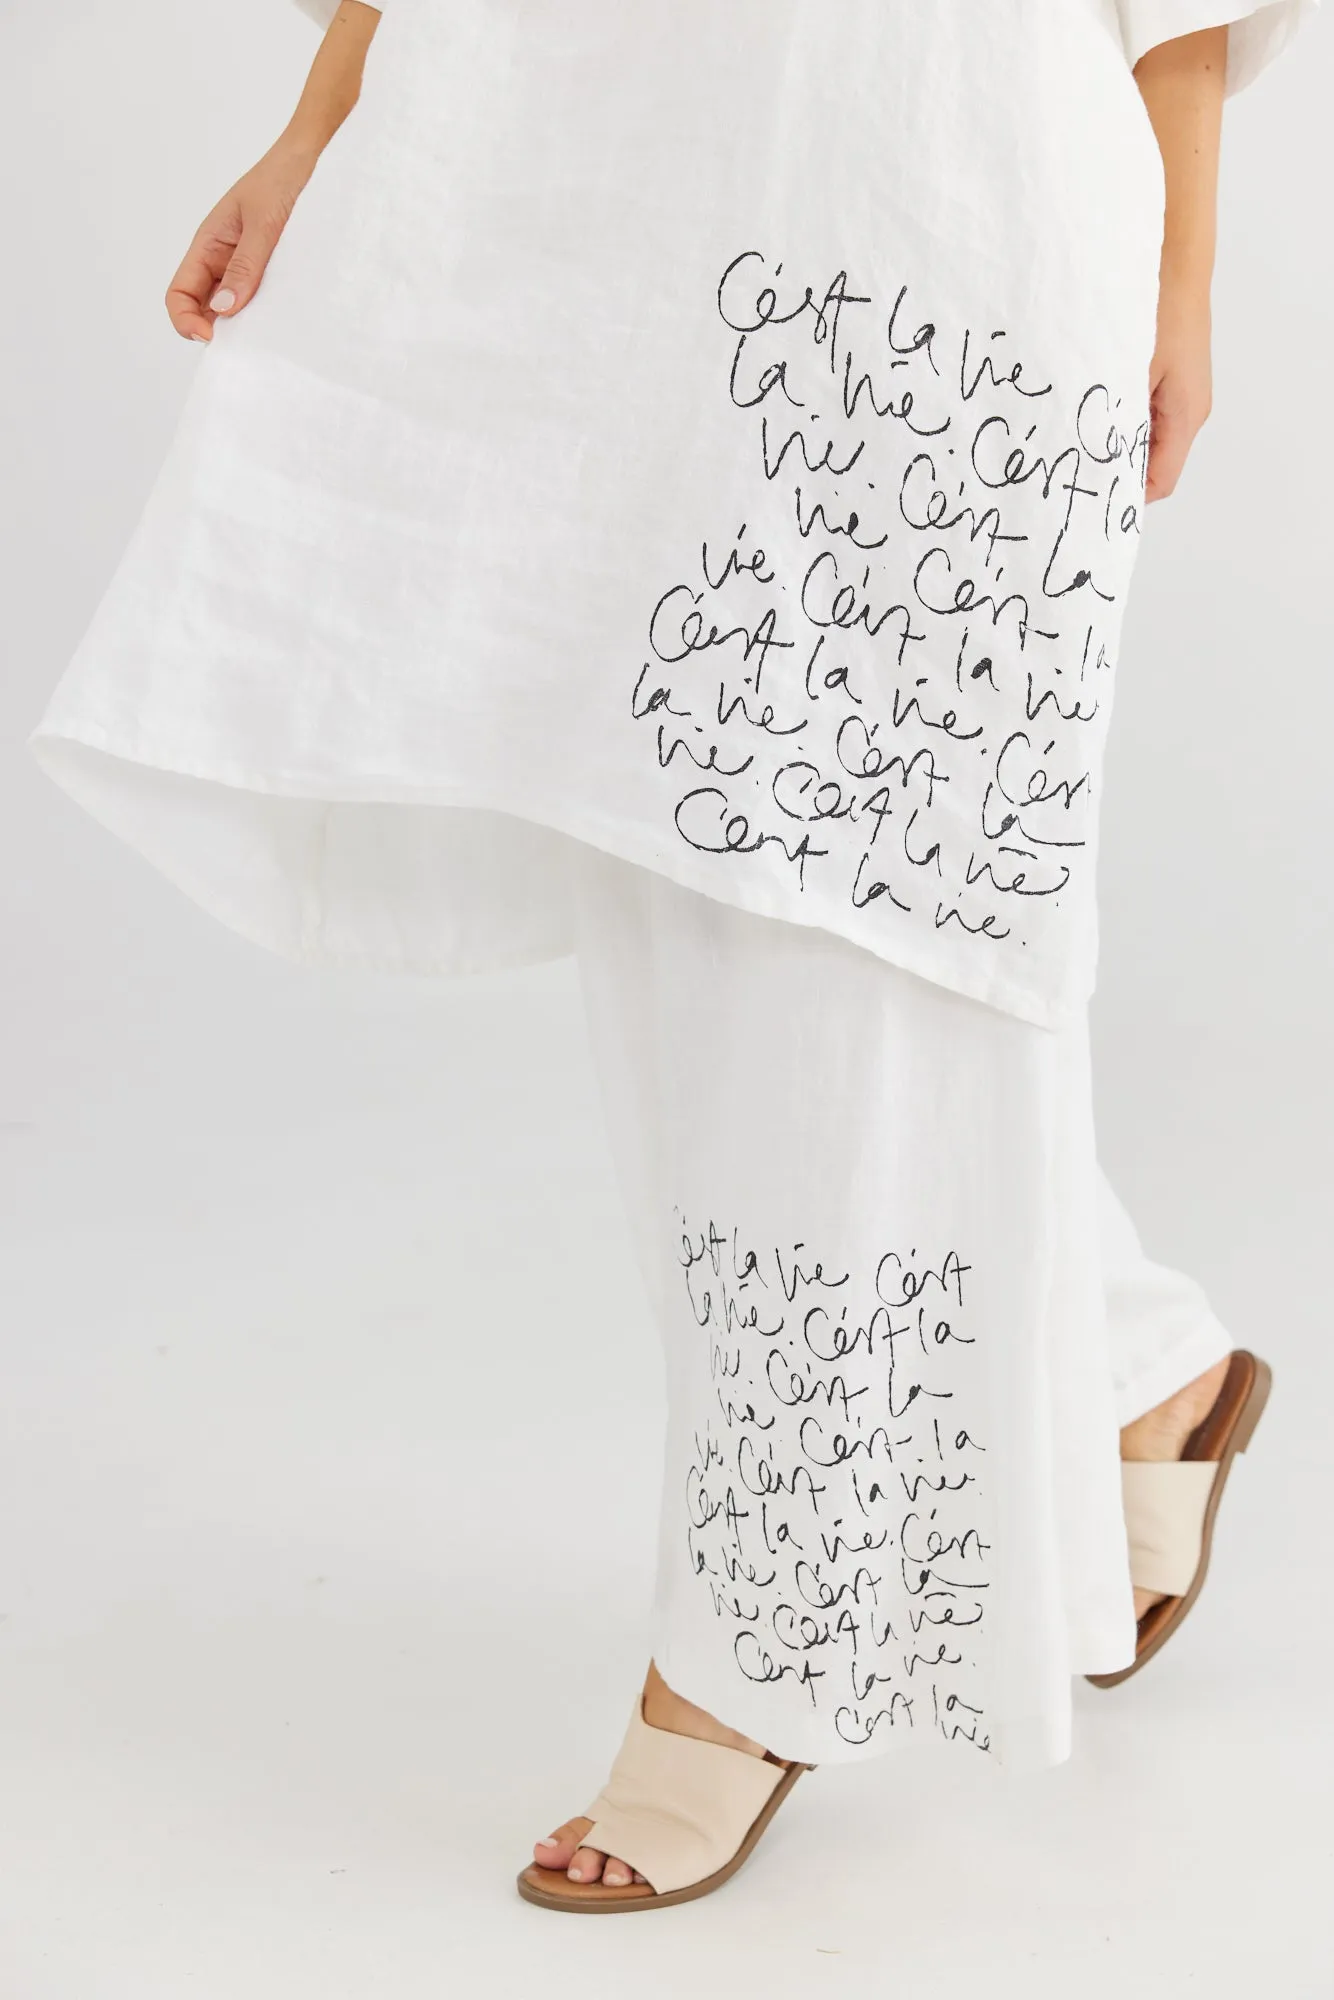 Cést la vie
la vie Cést
vie. Cést la
vie. Cést la
vie. Cést Cést la
Céust la la vie
la vie. vie. Cést
vie. Cést la
Cést la vie.
Cest la vie.
ést la vie Cést
la vie. Cést la
vie Cést la
vie Cést la
vie. Cést la vie.
Cést la vie. Cést
la vie. Cést la
vie. Cést la vie.
Cest la vie.
Cest la
vie